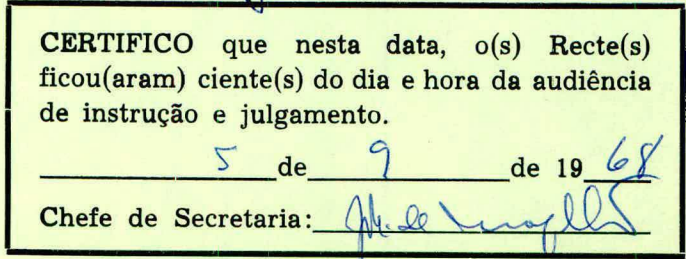 CERTIFICO que nesta data, o(s) Recte(s)
ficou(aram) ciente(s) do dia e hora da audiência
de instrução e julgamento.
5 de 9 de 19 68
Chefe de Secretaria: